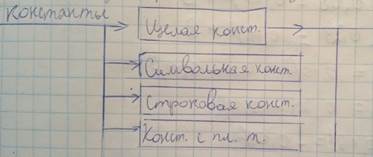 константы
Целая конст.
Символьная конст.
Строковая конст.
Конст. с пл. т.